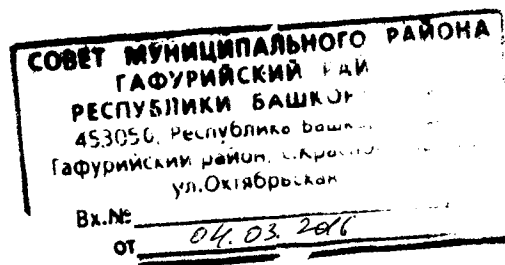 СОВЕТ МУНИЦИПАЛЬНОГО РАЙОНА
ГАФУРИЙСКИЙ
РЕСПУБЛИКИ
453050, Республика
Гафурийский район,
ул.Октябрьская
Вх.№
от 04.03.2016